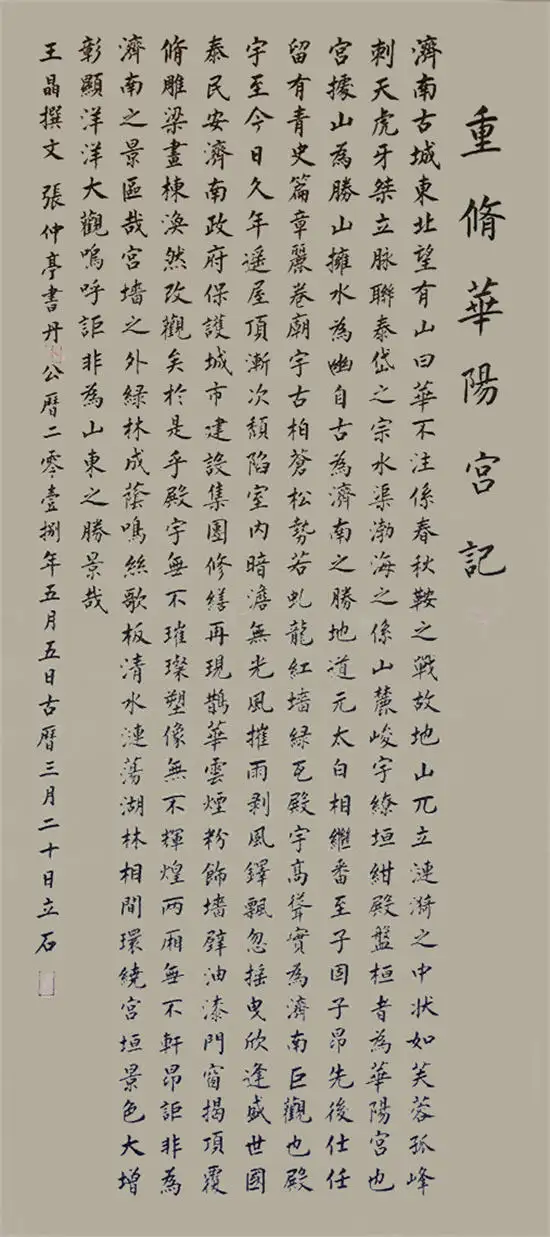 重脩華陽宮記
濟南古城東北望有山曰華不注係春秋鞍之戰故地山兀立漣漪之中狀如芙蓉孤峰
刺天虎牙桀立脉聯泰岱之宗水渠渤海之係山麓峻宇繚垣紺殿盤桓者為華陽宮也
宮據山為勝山擁水為幽自古為濟南之勝地道元太白相繼番至子固子昂先後仕任
留有青史篇章麗卷廟宇古柏蒼松勢若虬龍紅墻綠瓦殿宇高聳實為濟南巨觀也殿
宇至今日久年遥屋頂漸次頹陷室内暗澹無光風摧雨剥風鐸飄忽摇曳欣逢盛世國
泰民安濟南政府保護城市建設集團修繕再現鵲華雲煙粉飾墻壁油漆門窗揭頂覆
脩雕梁畫棟涣然改觀矣於是乎殿宇無不璀璨塑像無不輝煌兩厢無不軒昂詎非為
濟南之景區哉宮墻之外緑林成蔭鳴絲歌板清水漣蕩湖林相間環繞宮垣景色大增
彰顯洋洋大觀嗚呼詎非為山東之勝景哉
王晶撰文 張仲亭書丹 公曆二零壹捌年五月五日古曆三月二十日立石